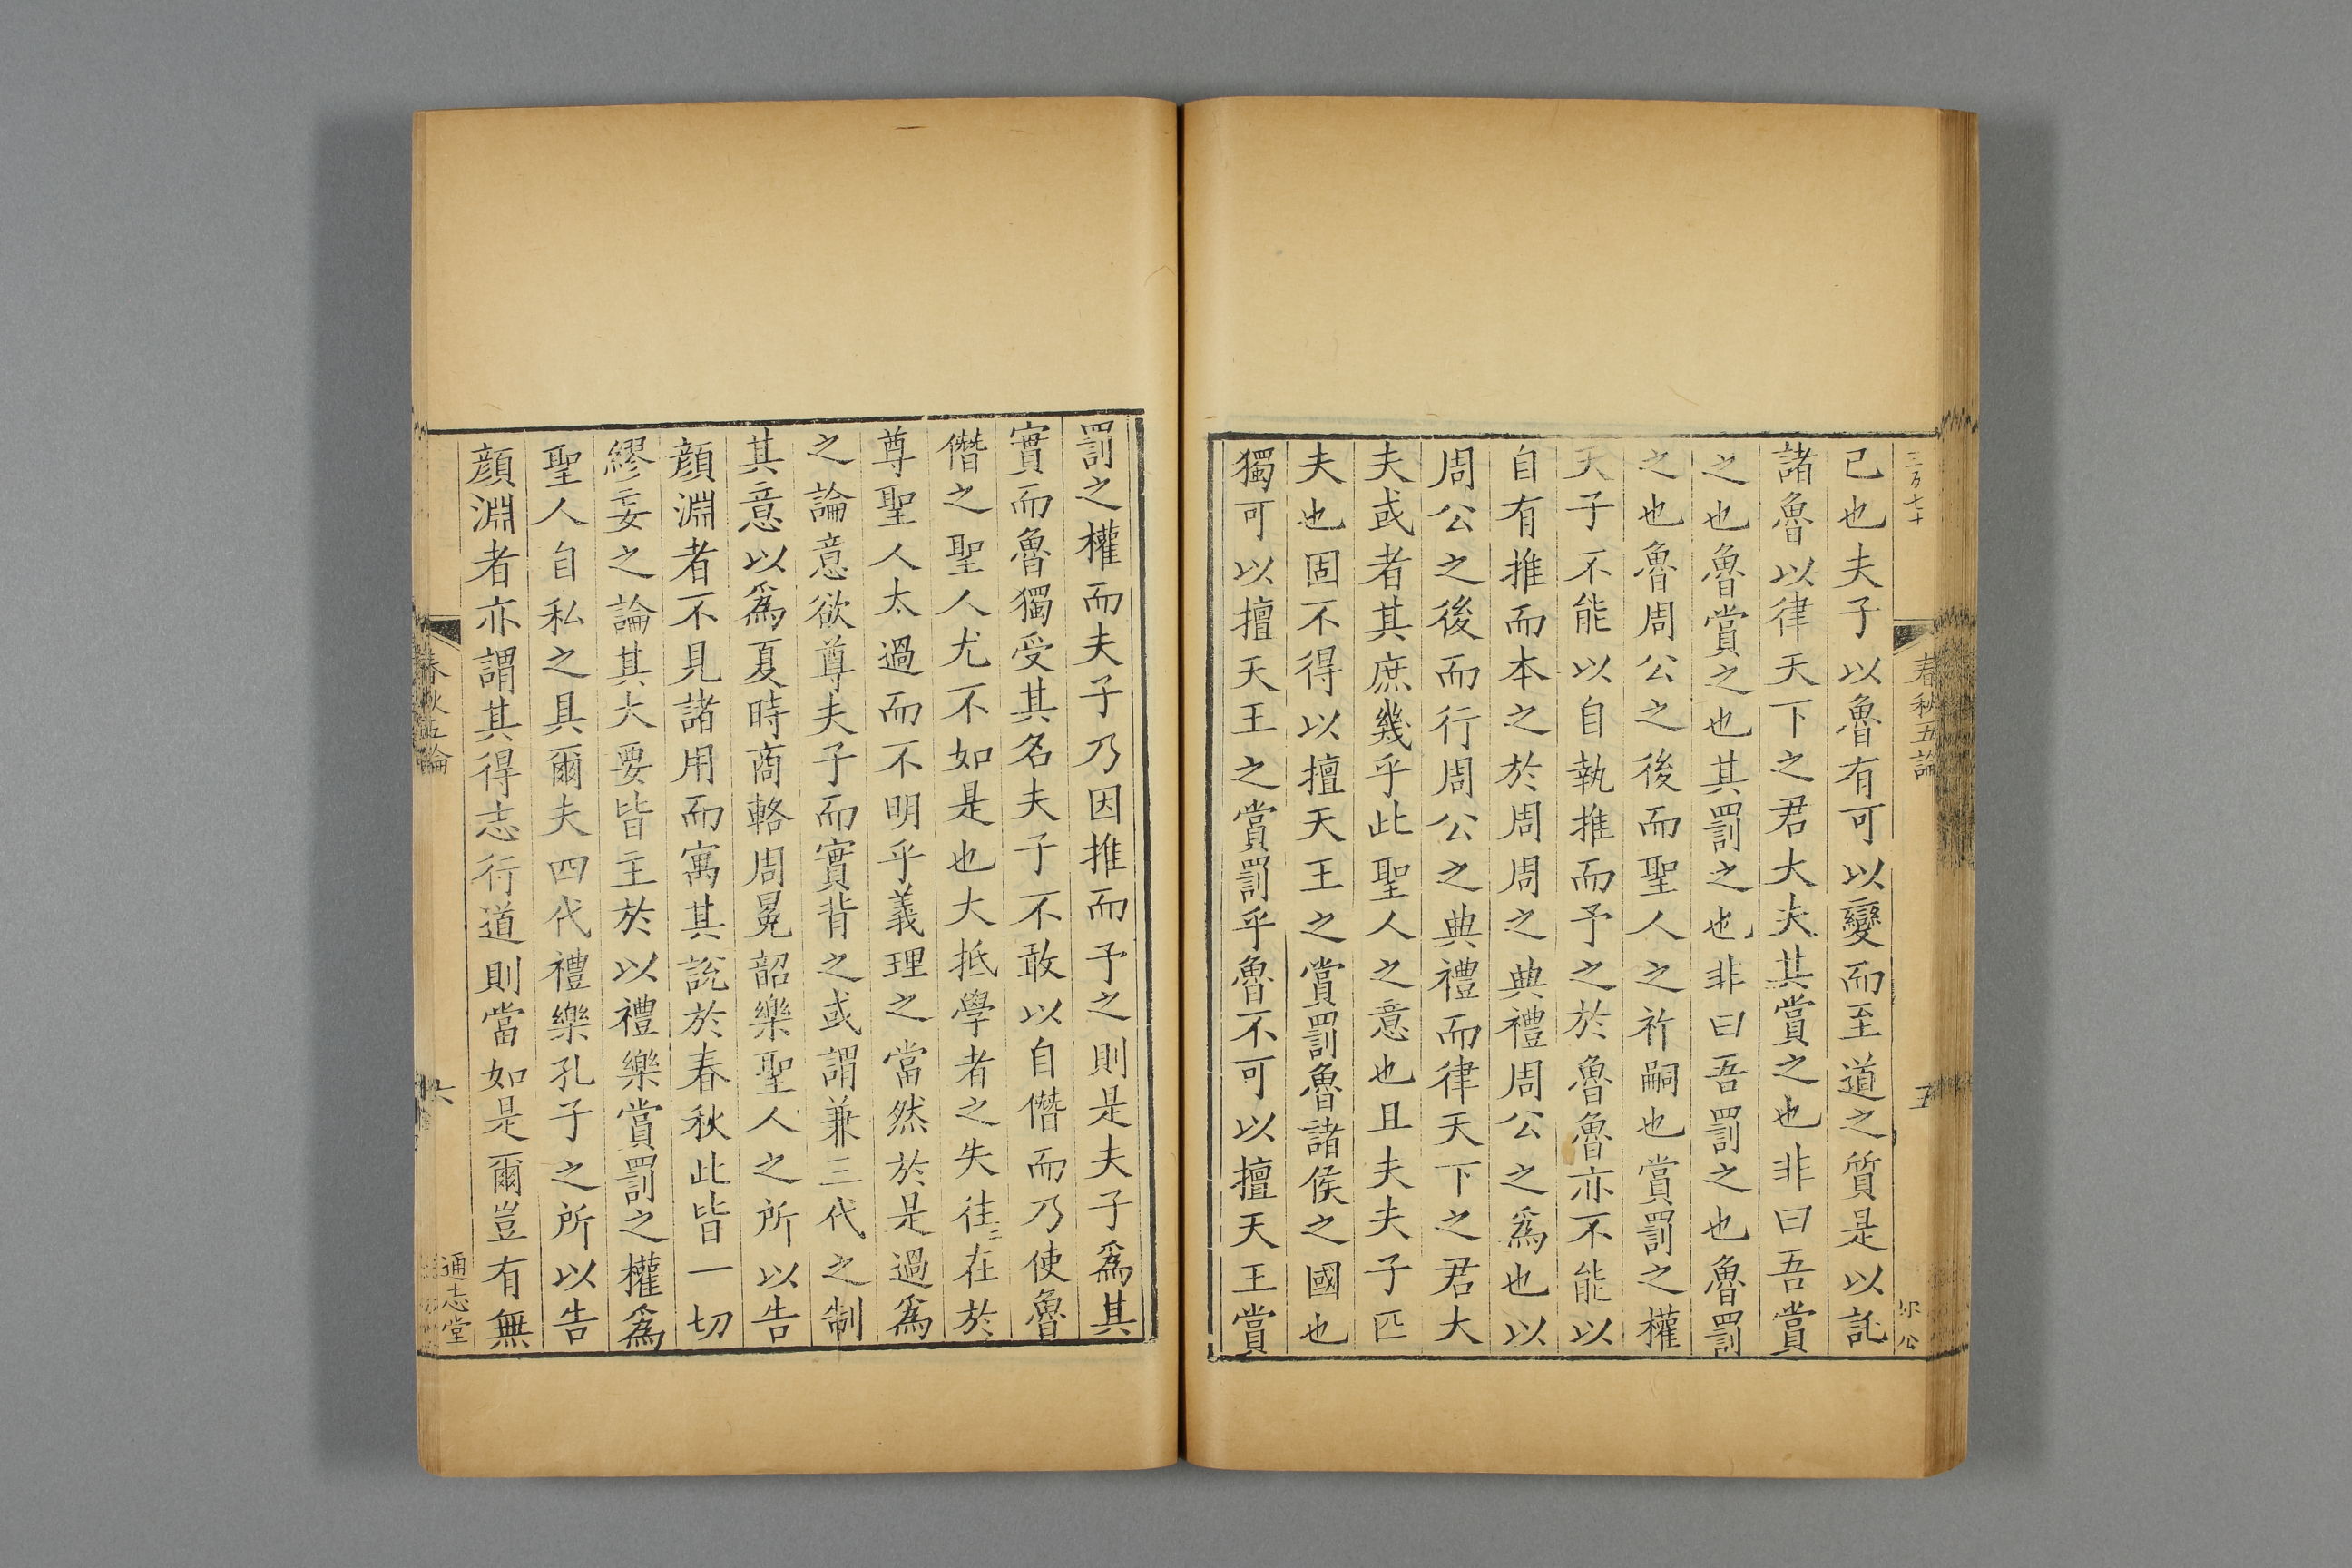 春秋五論
五
己也夫子以魯有可以變而至道之質是以託
諸魯以律天下之君大夫其賞之也非曰吾賞
之也魯賞之也其罰之也非曰吾罰之也魯罰
之也魯周公之後而聖人之祚嗣也賞罰之權
天子不能以自執推而予之於魯魯亦不能以
自有推而本之於周周之典禮周公之爲也以
周公之後而行周公之典禮而律天下之君大
夫或者其庶幾乎此聖人之意也且夫夫子匹
夫也固不得以擅天王之賞罰魯諸侯之國也
獨可以擅天王之賞罰乎魯不可以擅天王賞
罰之權而夫子乃因推而予之則是夫子爲其
實而魯獨受其名夫子不敢以自僭而乃使魯
僭之聖人尤不如是也大抵學者之失往二在於
尊聖人太過而不明乎義理之當然於是過爲
之論意欲尊夫子而實背之或謂兼三代之制
其意以爲夏時商輅周冕韶樂聖人之所以告
顏淵者不見諸用而寓其說於春秋此皆一切
繆妄之論其大要皆主於以禮樂賞罰之權爲
聖人自私之具爾夫四代禮樂孔子之所以告
顏淵者亦謂其得志行道則當如是爾豈有無
春秋五論
六
通志堂